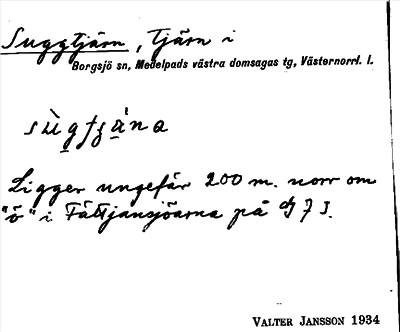 Suggtjärn, Tjärn i
Borgsjö sn, Medelpads västra domsagas tg, Västernorrl. l.
Ligger ungefär 200 m. norr om
"ö" i Fättjansjöarna på 7 J.
VALTER JANSSON 1934